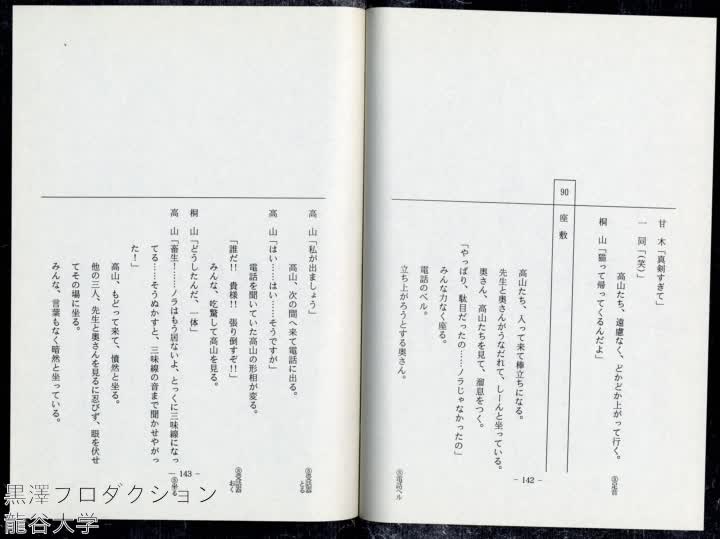 甘　木「真剣すぎて」
一　同「（笑）」
高山たち、遠慮なく、どかどか上がって行く。
桐　山「猫って帰ってくるんだよ」
Ⓢ足音
90　座　敷
高山たち、入って来て棒立ちになる。
先生と奥さんがうなだれて、しーんと坐っている。
奥さん、高山たちを見て、溜息をつく。
「やっぱり、駄目だったの……ノラじゃなかったの」
みんな力なく座る。
電話のベル。
立ち上がろうとする奥さん。
Ⓢ電話ベル
－ 142 －
高　山「私が出ましょう」
高山、次の間へ来て電話に出る。
Ⓢ受話器とる
高　山「はい……はい……そうですが」
電話を聞いていた高山の形相が変る。
「誰だ!!　貴様!!　張り倒すぞ!!」
みんな、吃驚して高山を見る。
Ⓢ受話器おく
桐　山「どうしたんだ、一体」
高　山「畜生！……ノラはもう居ないよ、とっくに三味線になっ
てる……そうぬかすと、三味線の音まで聞かせやがっ
た！」
高山、もどって来て、憤然と坐る。
Ⓢ坐る
他の三人、先生と奥さんを見るに忍びず、眼を伏せ
てその場に坐る。
みんな、言葉もなく暗然と坐っている。
－ 143 －
黒澤プロダクション
龍谷大学